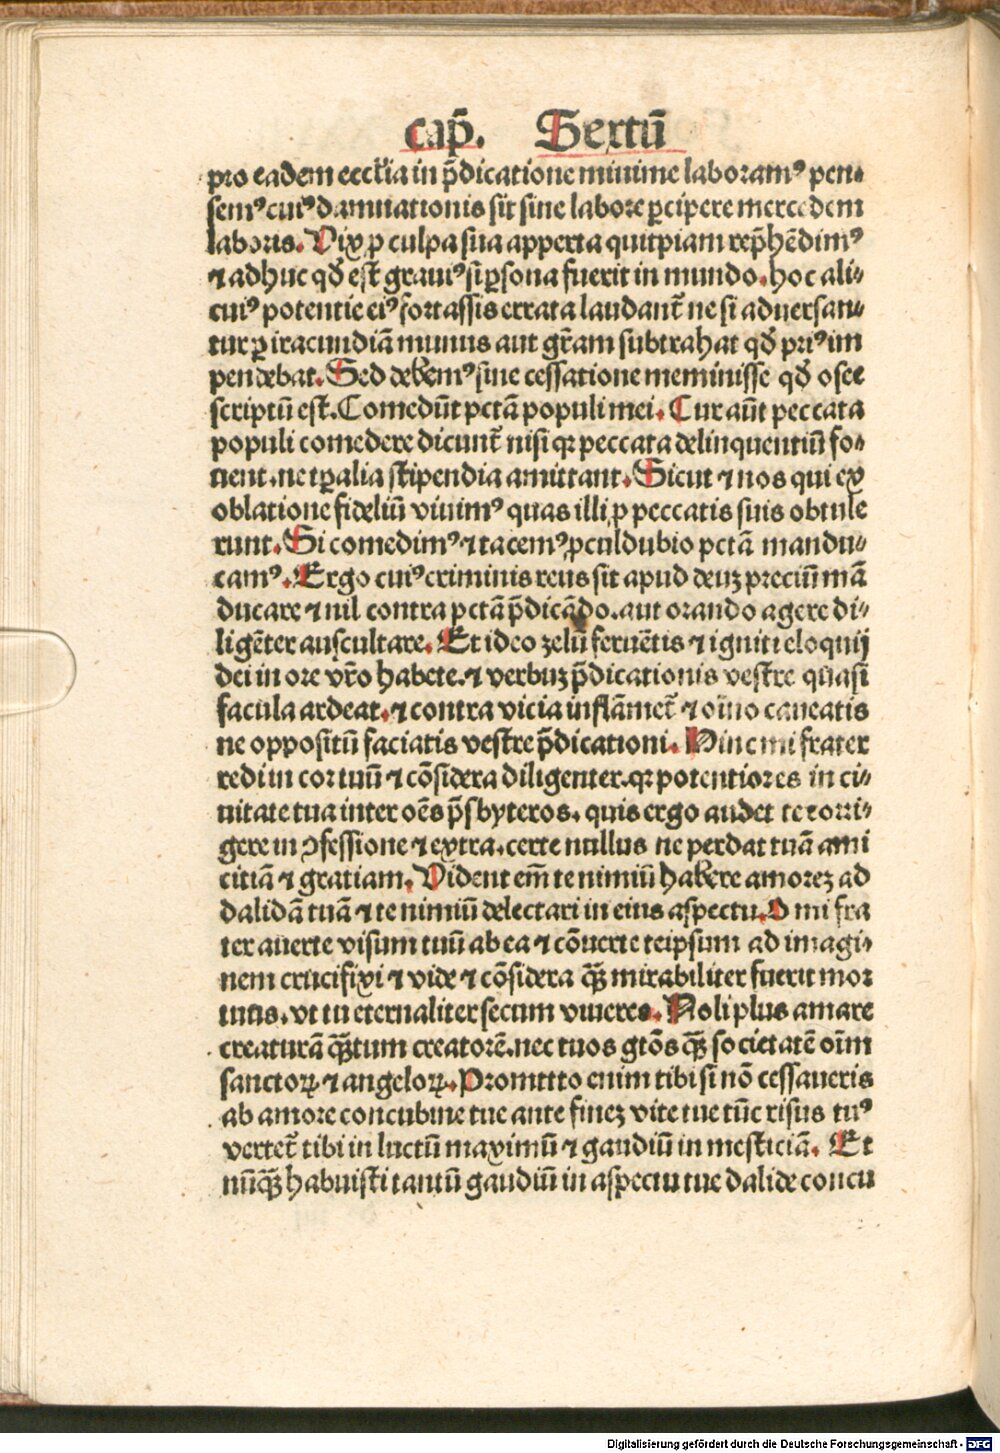 cap̄. Sextū
pro eadem eccl'ia in p̄dicatione minime laboramꝰ pen⸗
semꝰ cuiꝰ damnationis sit sine labore ꝑcipere mercedem
laboris. Vix ꝓ culpa sua apperta quitpiam rep̄hēdimꝰ
⁊ adhuc qd̄ est grauiꝰ si ꝑsona fuerit in mundo. hoc ali⸗
cuiꝰ potentie eiꝰ fortassis errata laudant᷑ ne si aduersan⸗
tur ꝑ iracundiā munus aut gr̄am subtrahat qd̄ priꝰ im
pendebat. Sed debemꝰ sine cessatione meminisse qd̄ osee
scriptū est. Comedūt pctā populi mei. Cur aūt peccata
populi comedere dicunt᷑ nisi qꝛ peccata delinquentiū fo⸗
uent. ne tꝑalia stipendia amittant. Sicut ⁊ nos qui ex
oblatione fideliū viuimꝰ quas illi ꝓ peccatis suis obtule
runt. Si comedimꝰ ⁊ tacemꝰ ꝓculdubio pctā mandu⸗
camꝰ. Ergo cuiꝰ criminis reus sit apud deuʒ preciū mā
ducare ⁊ nil contra pctā p̄dicādo. aut orando agere di⸗
ligēter auscultare. Et ideo zelū feruētis ⁊ igniti eloquij
dei in ore vr̄o habete. ⁊ verbuʒ p̄dicationis vestre quasi
facula ardeat. ⁊ contra vicia inflāmet᷑ ⁊ oīno caueatis
ne oppositū faciatis vestre p̄dicationi. Hinc mi frater
redi in cor tuū ⁊ cōsidera diligenter. qꝛ potentiores in ci⸗
uitate tua inter oēs p̄sbyteros. quis ergo audet te corri⸗
gere in ꝯfessione ⁊ extra. certe nullus ne perdat tuā ami
citiā ⁊ gratiam. Vident em̄ te nimiū habere amoreʒ ad
dalidā tuā ⁊ te nimiū delectari in eius aspectu. O mi fra
ter auerte visum tuū ab ea ⁊ cōuerte teipsum ad imagi⸗
nem crucifixi ⁊ vide ⁊ cōsidera qȝ̄ mirabiliter fuerit mor
tuus. vt tu eternaliter secum viueres. Noli plus amare
creaturā qȝ̄tum creatorē. nec tuos gtōs qȝ̄ societatē oīm
sanctoꝝ ⁊ angeloꝝ. Promitto enim tibi si nō cessaueris
ab amore concubine tue ante fineʒ vite tue tūc risus tuꝰ
vertet᷑ tibi in luctū maximū ⁊ gaudiū in mesticiā. Et
nūqȝ̄ habuisti tantū gaudiū in aspectu tue dalide concu
Digitalisierung gefördert durch die Deutsche Forschungsgemeinschaft - DFG